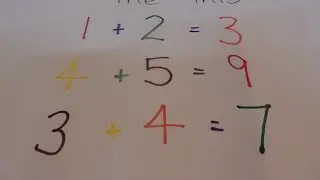 1 + 2 = 3
4 + 5 = 9
3 + 4 = 7